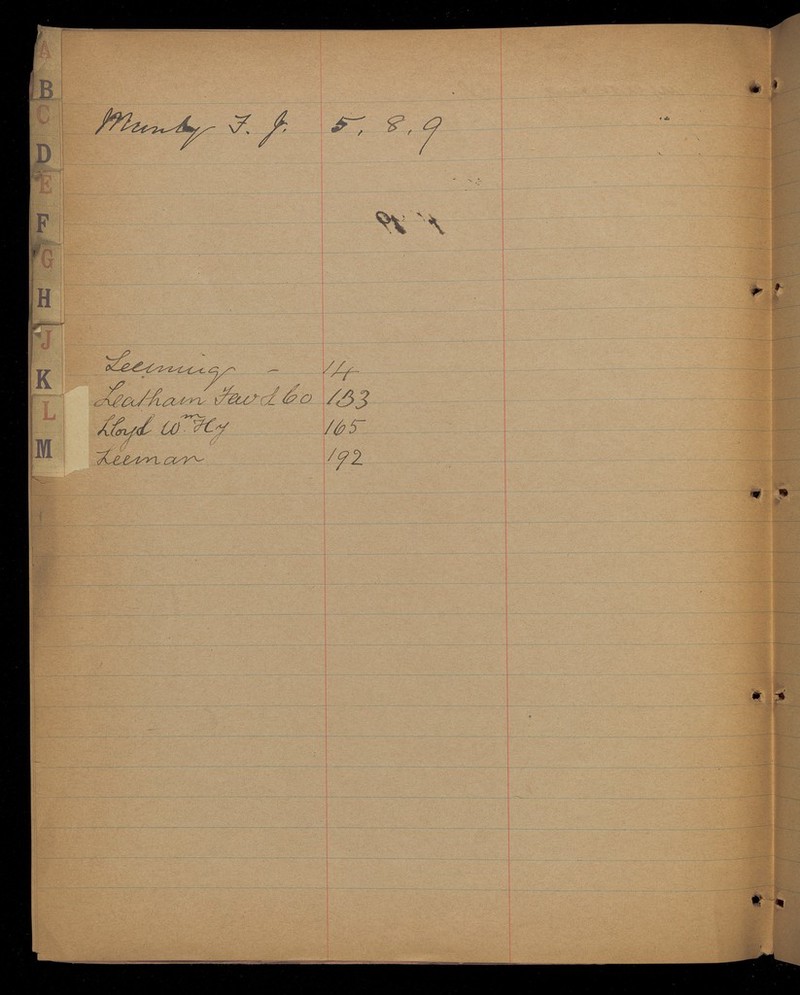 A
B
C
D
E
F
G
H
J
K
L
M
Munby F. J. 5, 8, 9
Leeming - 14
Leatham Tew & Co 133
Lloyd Wm. Hy 165
Leeman 192